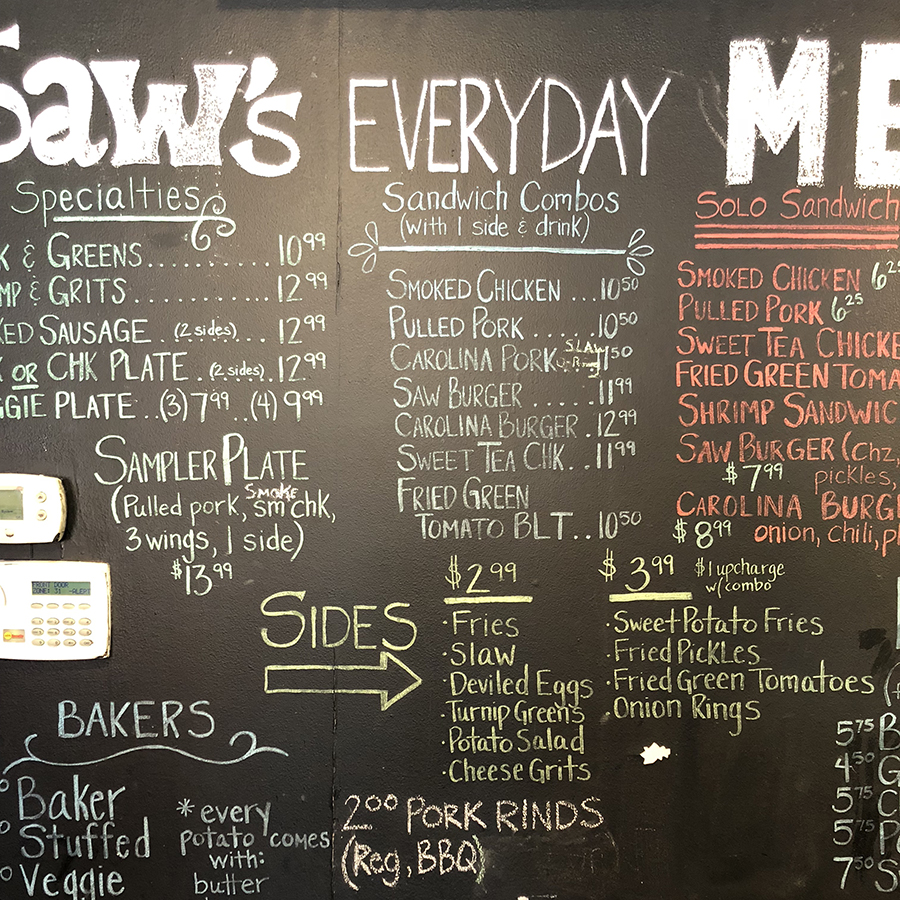 Saw's EVERYDAY ME
Specialties
& GREENS 10.99
& GRITS 12.99
SAUSAGE (2 sides) 12.99
OR CHK PLATE (2 sides) 12.99
PLATE (3) 7.99 (4) 9.99
SAMPLER PLATE
(Pulled pork, smoke chk,
3 wings, 1 side)
$13.99
Sandwich Combos
(with 1 side & drink)
SMOKED CHICKEN ...10.50
PULLED PORK ......10.50
CAROLINA PORK SLAW
SAW BURGER ......11.99
CAROLINA BURGER .12.99
SWEET TEA CHK..11.99
FRIED GREEN
TOMATO BLT..10.50
SOLO SANDWICH
SMOKED CHICKEN 6.25
PULLED PORK 6.25
SWEET TEA CHICKE
FRIED GREEN TOMA
SHRIMP SANDWIC
SAW BURGER (Chz,
$7.99 pickles,
CAROLINA BURG
$8.99 onion, chili,
SIDES
$2.99
·Fries
·Slaw
·Deviled Eggs
·Turnip Greens
·Potato Salad
·Cheese Grits
$3.99 $1 upcharge
w/combo
·Sweet Potato Fries
·Fried Pickles
·Fried Green Tomatoes
·Onion Rings
BAKERS
Baker
Stuffed
Veggie
*every
potato comes
with:
butter
2.00 PORK RINDS
(Reg, BBQ)
5.75 B
4.50 G
5.75 C
5.75 P
7.50 S